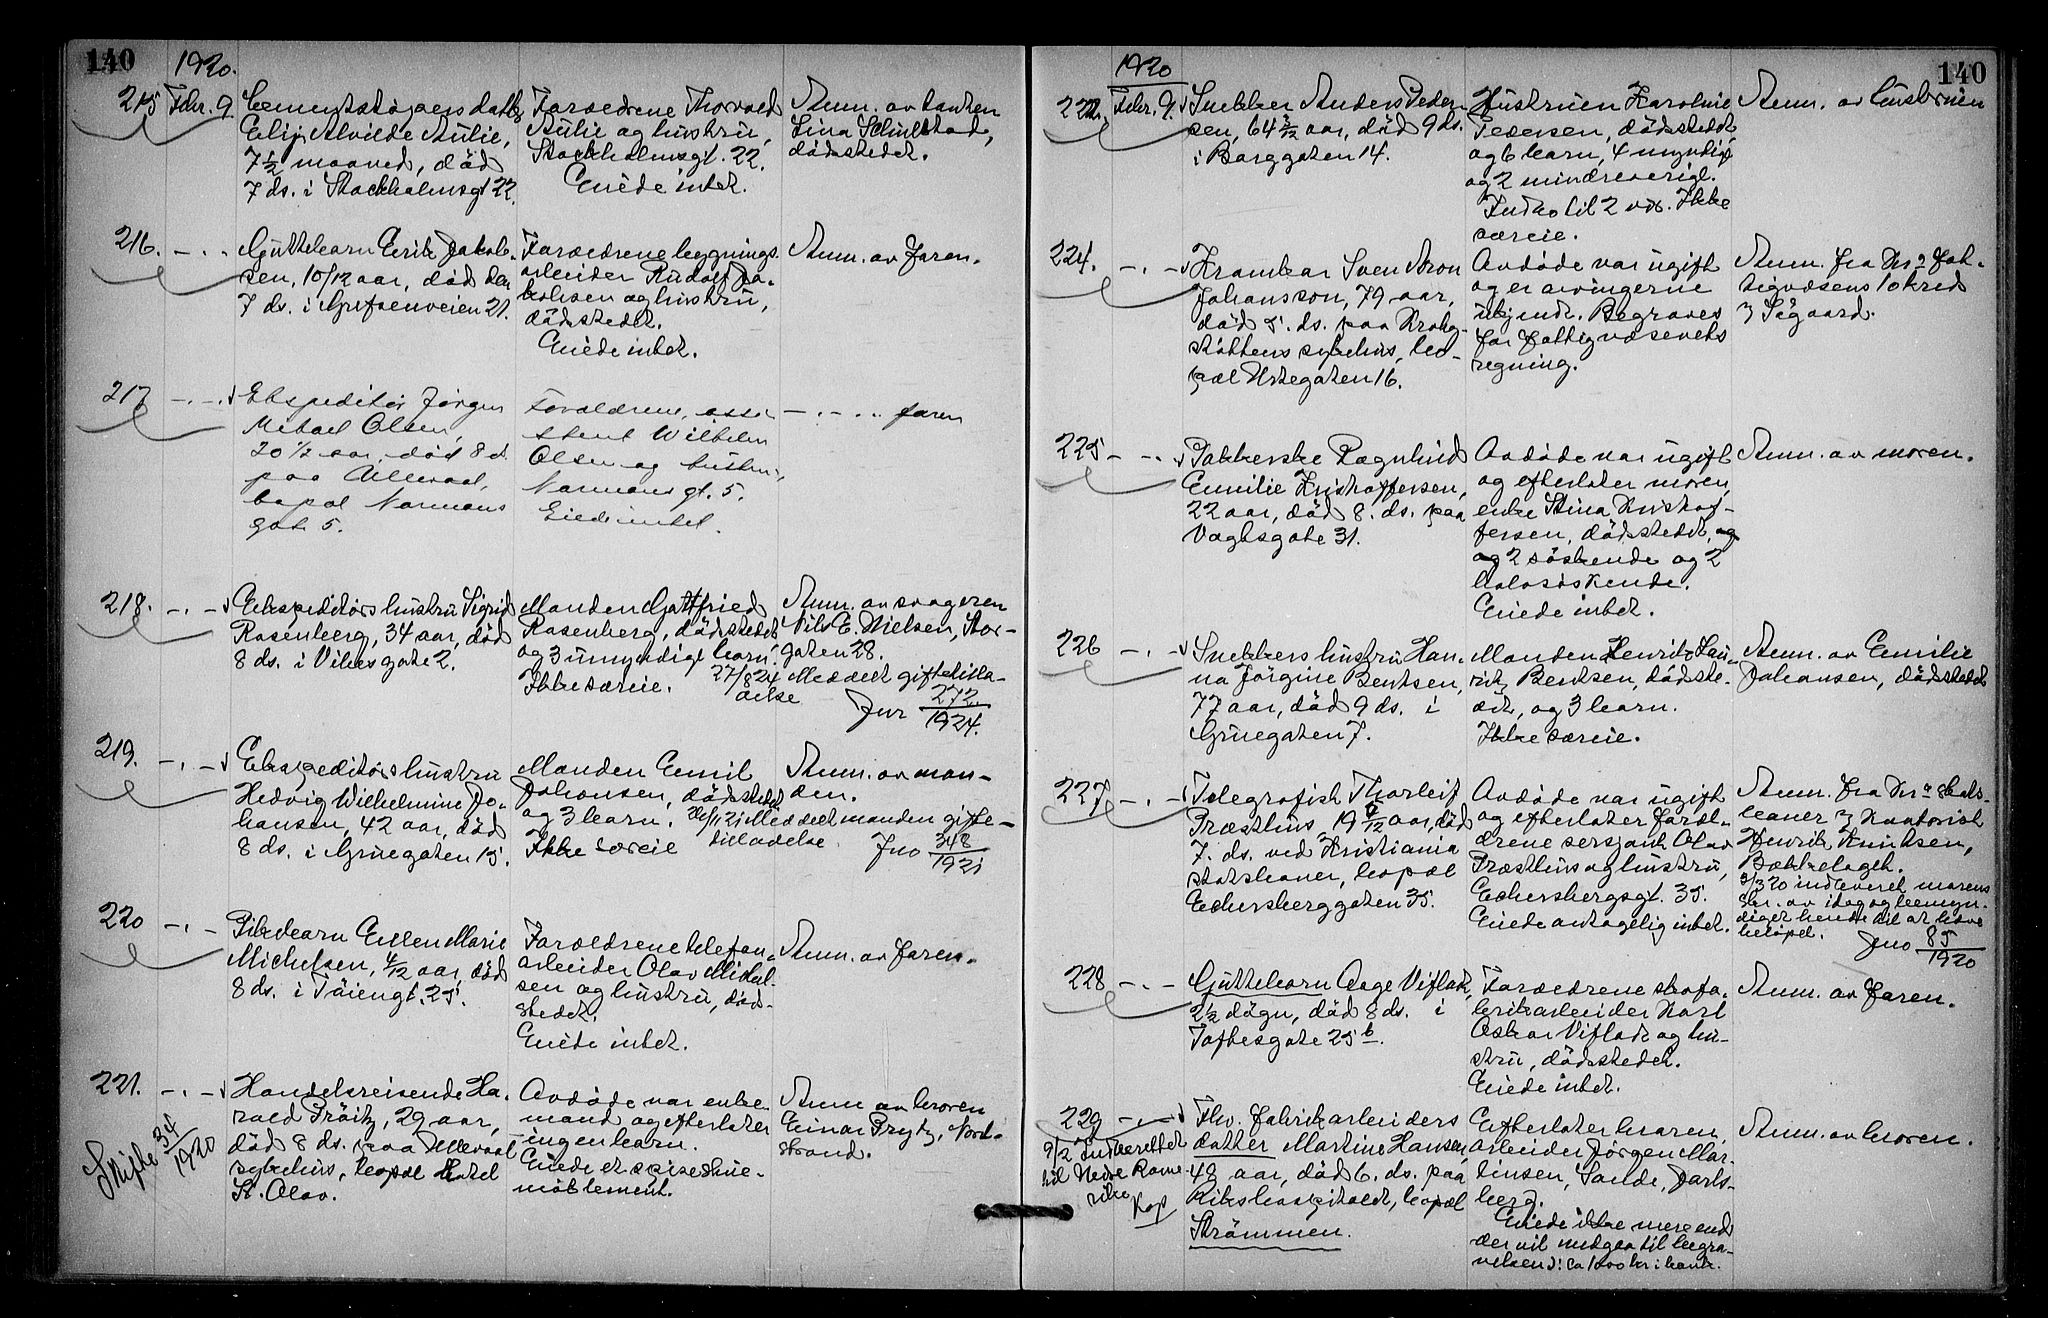 140
1920.
215 Febr. 9.
Cementstøpers datter
Elij Alvilde Aulie,
7 1/2 maaned, död
7 ds. i Stockholmsgt 22.
Forældrene Thorvald
Aulie og hustru,
Stockholmsgt. 22.
Eiede intet.
Anm. av tanten
Lina Schulstad,
dödsstedet.
216. -.-
Guttebarn Erik Jakob-
sen, 10/12 aar, död den
7 ds. i Grefsenveien 21.
Forældrene bygnings-
arbeider Rudolf Ja-
kobsen og hustru,
dödsstedet.
Eiede intet.
Anm. av faren.
217 -.-
Ekspeditör Jörgen
Mikael Olsen,
20 1/2 aar, död 8 ds.
paa Ullevaal,
bopæl Normans
gate 5.
Forældrene, assi-
stent Wilhelm
Olsen og hustru,
Normans gt. 5.
Eiede intet.
-.-.. faren
218. -.-
Ekspeditörs hustru Sigrid
Rosenberg, 34 aar, död
8 ds. i Vibesgate 2.
Manden Gottfried
Rosenberg, dödsstedet
og 3 umyndige barn.
Ikke særeie.
Anm. av svogeren
Nils E. Nielsen, Stor-
gaten 28.
27/8 24 Meddelt giftetilla-
delse
Jnr 272/1924.
219. -.-
Ekspeditörs hustru
Hedvig Wilhelmine Jo-
hansen, 42 aar, död
8 ds. i Gruegaten 15.
Manden Emil
Johansen, dödsstedet
og 3 barn.
Ikke særeie
Anm. av man-
den.
Meddelt manden gifte-
tilladelse. Jno 348/1921
220 -.-
Pikebarn Ellen Marie
Michelsen, 4/12 aar, död
8 ds. i Töiengt. 25.
Forældrene telefon-
arbeider Olav Michel-
sen og hustru, död-
stedet.
Eiede intet.
Anm. av faren.
221. -.-
Skifte 34/1920
Handelsreisende Ha-
rald Pröitz, 29 aar,
död 8 ds. paa Ullevaal
sykehus, bopæl Hotel
St. Olav.
Avdöde var enke-
mand og efterlater
ingen barn.
Eiede et spisestue-
möblement.
Anm av broren
Einar Prytz, Nord-
strand.
140
1920
222. Febr. 9.
Snekker Anders Peder-
sen, 64 3/12 aar, död 9 ds.
i Borggaten 14.
Hustruen Karoline
Pedersen, dödsstedet
og 6 barn, 4 myndige
og 2 mindreaarige.
Indko til 2 vos. Ikke
særeie.
Anm. av hustruen
224. -.-
Kramkar Sven Aron
Johansson, 79 aar,
död 5. ds. paa Krohg-
stöttens sykehus, bo-
pæl Urtegaten 16.
Avdöde var ugift
og er arvingerne
ukjendt. Begraves
for fattigvæsenets
regning.
Anm. fra Kr.a fat-
tigvæsens 10 kred
v/ Sigaard.
225 -.-
Pakkerske Ragnhild
Emilie Kristoffersen,
22 aar, död 8. ds. paa
Vogtsgate 31.
Avdöde var ugift
og efterlater moren
enke Stina Kristof-
fersen, dödsstedet, og
og 2 söskende og 2
halvsöskende.
Eiede intet.
Anm. av moren.
226 -.-
Snekkers hustru Han-
na Jörgine Bentsen,
77 aar, död 9 ds. i
Gruegaten 7.
Manden Henrik Lau-
ritz Bentsen, dödsste-
det, og 3 barn.
Ikke særeie.
Anm. av Emilie
Johansen, dödsstedet
227 -.-
Telegrafist Thorleif
Præsthus, 19 6/12 aar, död
7. ds. ved Kristiania
statsbaner, bopæl
Eckersberggaten 35.
Avdöde var ugift
og efterlater foræl-
drene sersjant Olav
Præsthus og hustru,
Eckersbergsgt. 35.
Eiede antagelig intet.
Anm. fra Kr.a stats-
baner v/ Kontorist
Henrik Knutsen,
Bækkelaget.
3/3 20 indleveret morens
skr. av idag og bemyn-
diget hende til at hæve
belöpet. Jno 85/1920
228 -.-
Guttebarn Aage Vifladt,
2 1/2 dögn, död 8 ds. i
Toftesgate 25 b.
Forældrene skofa-
brikarbeider Karl
Oskar Vifladt og hu-
stru, dödsstedet.
Eiede intet.
Anm. av faren.
229 -.-
9/2 Indberettet
til Nedre Rome-
rike
Kop
Fhv. fabrikarbeiders
datter Martine Hansen,
48 aar, död 6. ds. paa
Rikshospitalet, bopæl
Strömmen.
Efterlater broren,
arbeider Jörgen Mar-
tinsen, Sande, Jarls-
berg.
Eiede ikke mere end
der vil medgaa til begra-
velsen: ca 1200 kr i bank.
Anm. av broren.